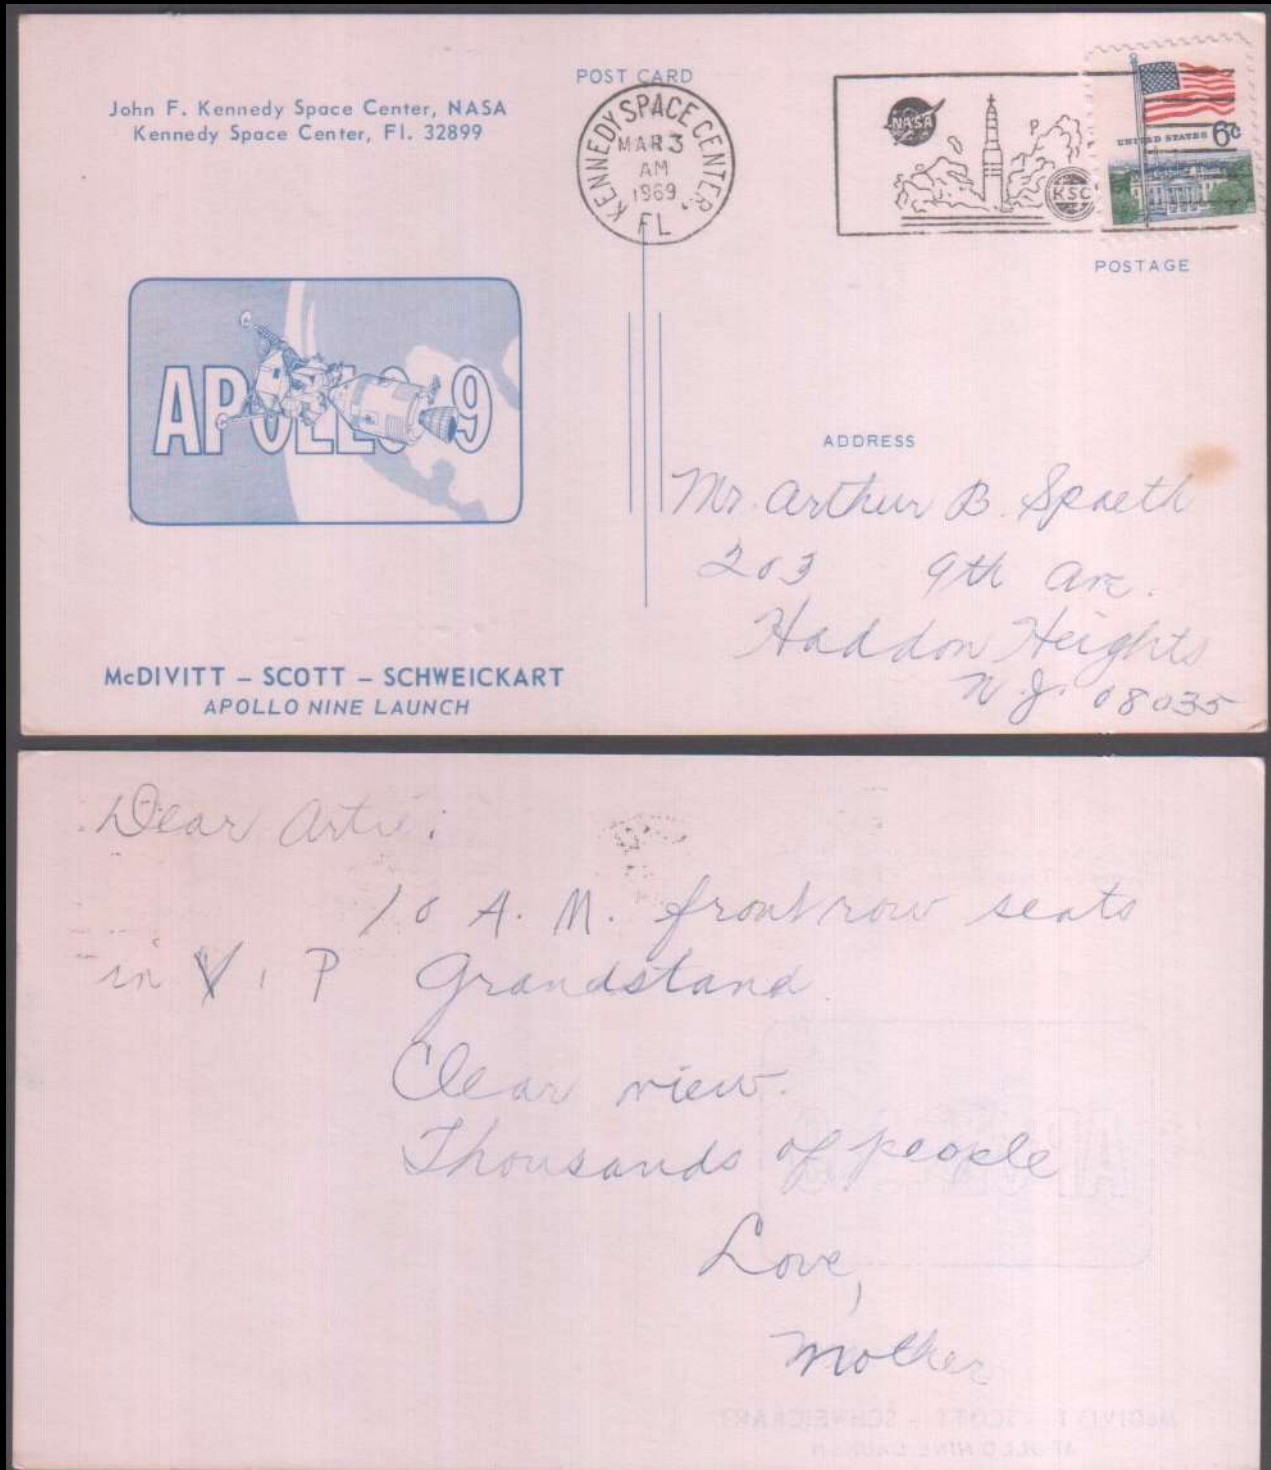 POST CARD
John F. Kennedy Space Center, NASA
Kennedy Space Center, Fl. 32899
KENNEDY SPACE CENTER,
MAR 3
AM
1969
FL
NASA
KSC
UNITED STATES 6c
POSTAGE
APOLLO 9
ADDRESS
Mr. Arthur B. Spaeth
203 9th Ave.
Haddon Heights
N.J. 08035
McDIVITT – SCOTT – SCHWEICKART
APOLLO NINE LAUNCH
Dear Artie:
10 A.M. front row seats
in V I P Grandstand.
Clear view.
Thousands of people
Love,
Mother